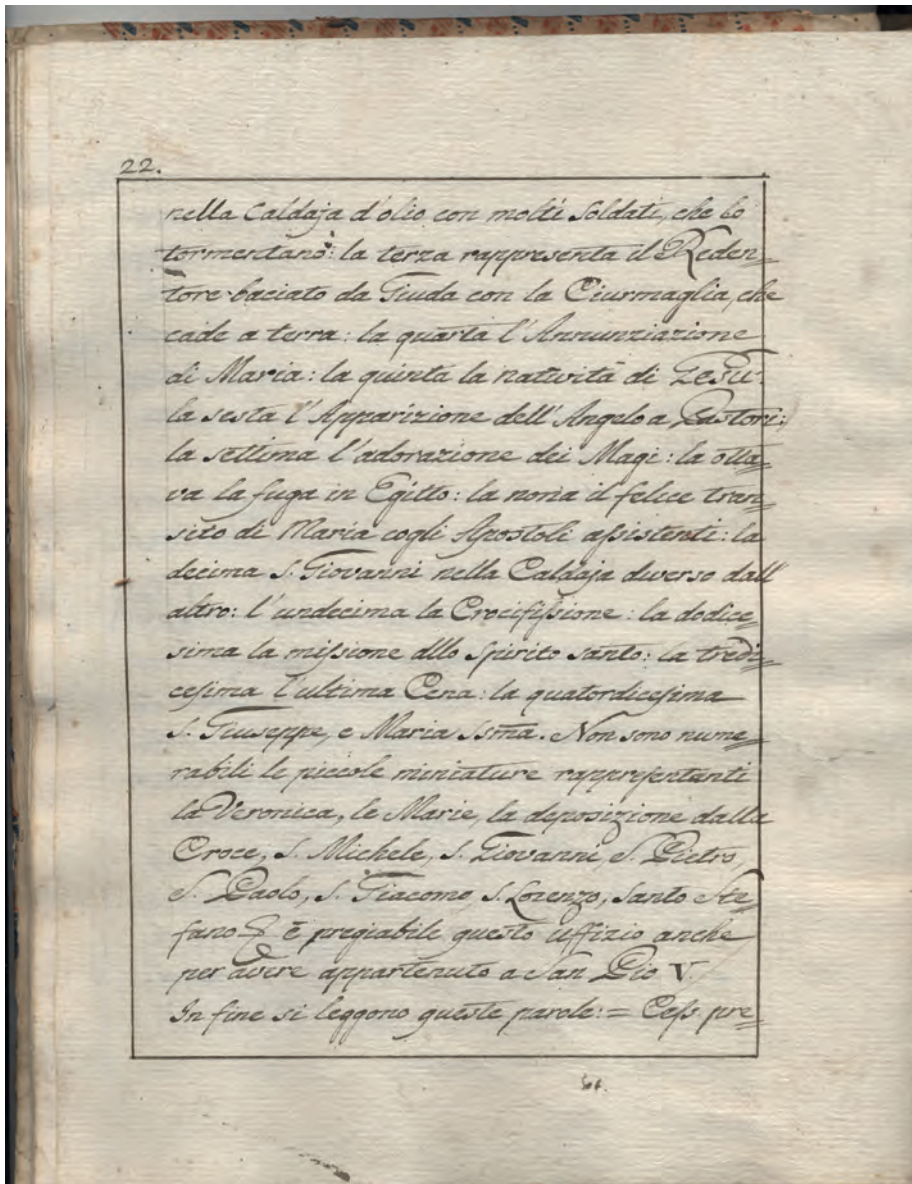 22.
nella Caldaja d'olio con molti Soldati, che lo
tormentano: la terza rappresenta il Reden=
tore baciato da Giuda con la Ciurmaglia, che
cade a terra: la quarta l'Annunziazione
di Maria: la quinta la natività di GESÙ:
la sesta l'Apparizione dell'Angelo a Pastori:
la settima l'adorazione dei Magi: la otta=
va la fuga in Egitto: la nona il felice tran=
sito di Maria cogli Apostoli assistenti: la
decima S. Giovanni nella Caldaja diverso dall'
altro: l'undecima la Crocifissione: la dodice=
sima la missione dllo Spirito santo: la tredi=
cesima l'ultima Cena: la quatordicesima
S. Giuseppe, e Maria Ssma. Non sono nume=
rabili le piccole miniature rappresentanti
la Veronica, le Marie, la deposizione dalla
Croce, S. Michele, S. Giovanni, S. Pietro,
S. Paolo, S. Giacomo, S. Lorenzo, Santo Ste=
fano è pregiabile questo uffizio anche
per avere appartenuto a San Pio V.
In fine si leggono queste parole: = Cess. pre=